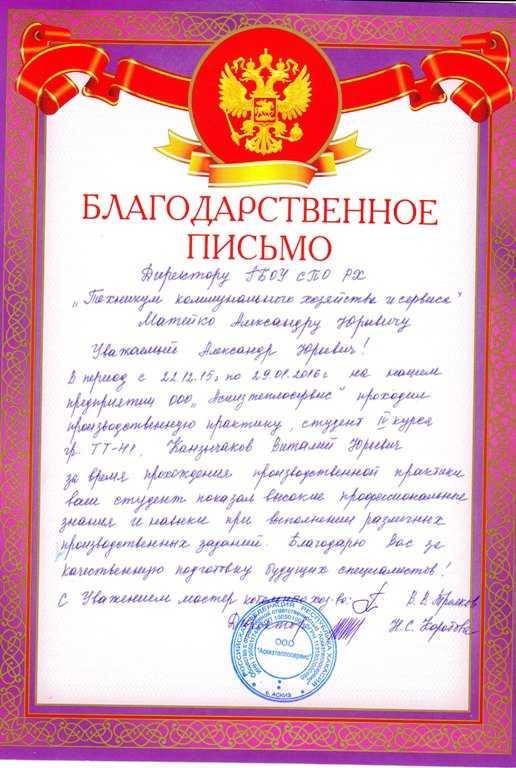 БЛАГОДАРСТВЕННОЕ
ПИСЬМО
Директору ГБОУ СПО РХ
„Техникум коммунального хозяйства и сервиса"
Матейко Александру Юрьевичу
Уважаемый Александр Юрьевич!
В период с 22.12.15г по 29.01.2016г на нашем
предприятии ООО „Аскизтеплосервис" проходил
производственную практику, студент IV курса
гр. ТТ-41, Канзычаков Виталий Юрьевич
за время прохождения производственной практики
ваш студент показал высокие профессиональные
знания и навыки при выполнении различных
производственных заданий. Благодарю Вас за
качественную подготовку будущих специалистов!
С Уважением мастер котельного хоз-ва:
Директор Н.С. Коротова
РОССИЙСКАЯ ФЕДЕРАЦИЯ РЕСПУБЛИКА ХАКАСИЯ
ООО
"Аскизтеплосервис"
с. АСКИЗ